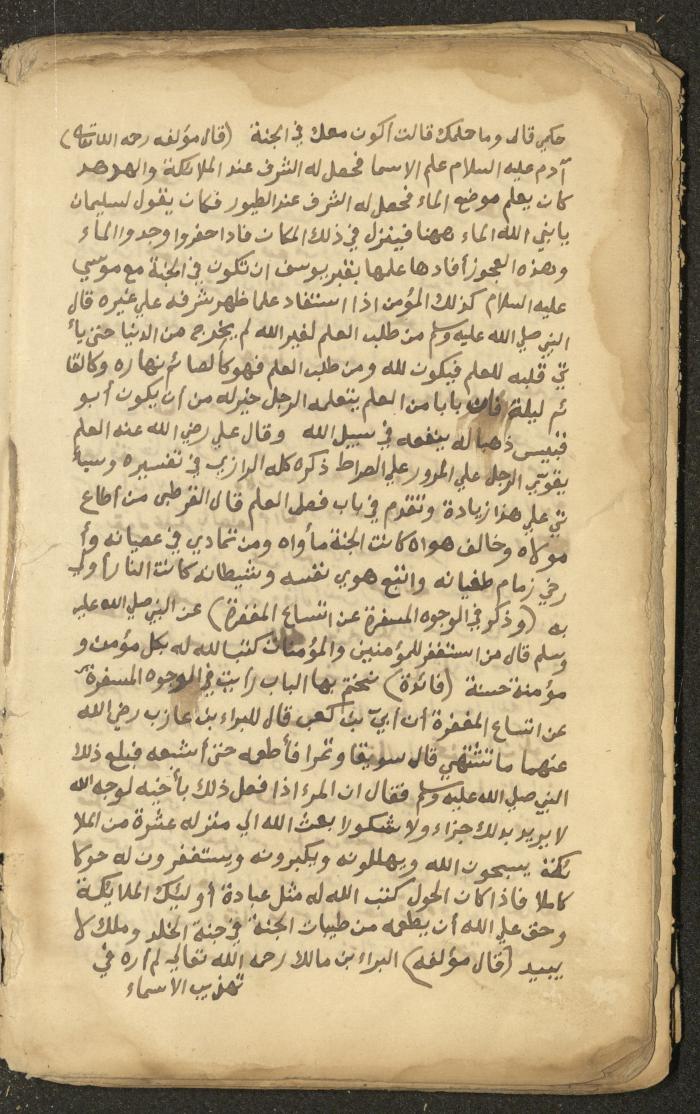 حكمي قال وما حكمك قالت أكون معك في الجنة (قال مؤلفه رحمه الله تعالى)
آدم عليه السلام علم الاسما فحصل له الشرف عند الملائكة والهدهد
كان يعلم موضع الماء فحصل له الشرف عند الطيور فكان يقول لسليمان
يا نبي الله الماء ههنا فينزل في ذلك المكان فاذا حفروا وجدوا الماء
وهذه العجوز أفادها علمها بقبر يوسف ان تكون في الجنة مع موسي
عليه السلام كذلك المؤمن اذا استفاد علما ظهر شرفه علي غيره قال
النبي صلي الله عليه وسلم من طلب العلم لغير الله لم يخرج من الدنيا حتى يأ
تي قلبه للعلم فيكون لله ومن طلب العلم فهو كالصائم نهاره وكالقا
ئم ليلة فان بابا من العلم يتعلمه الرجل خير له من أن يكون أبو
قبيس ذهبا له ينفقه في سبيل الله وقال علي رضي الله عنه العلم
يقوي الرجل علي المرور علي الصراط ذكره كله الرازي في تفسيره وسيأ
تي علي هذا زيادة وتقدم في باب فضل العلم قال القرطبي من أطاع
مولاه وخالف هواه كانت الجنة مأواه ومن تمادي في عصيانه وأ
رخي زمام طغيانه واتبع هوي نفسه وشيطانه كانت النار أولي
به (وذكر في الوجوه المسفرة عن اتساع المغفرة) عن النبي صلي الله عليه
وسلم قال من استغفر للمؤمنين والمؤمنات كتب الله له بكل مؤمن و
مؤمنة حسنة (فائدة) نختم بها الباب رأيت في الوجوه المسفرة
عن اتساع المغفرة أن أبي بن كعب قال للبراء بن عازب رضي الله
عنهما ما تشتهي قال سويقا وتمرا فأطعمه حتى أشبعه فبلغ ذلك
النبي صلي الله عليه وسلم فقال ان المرء اذا فعل ذلك بأخيه لوجه الله
لا يريد بذلك جزاء ولا شكورا بعث الله الي منزله عشرة من الملا
ئكة يسبحون الله ويهللونه ويكبرونه ويستغفرون له حوكا
كاملا فاذا كان الحول كتب الله له مثل عبادة أولئك الملائكة
وحق علي الله أن يطعمه من طيبات الجنة في جنة الخلد وملك لا
يبيد (قال مؤلفه) البراء بن مالك رحمه الله تعالي لم أره في
تهذيب الاسماء